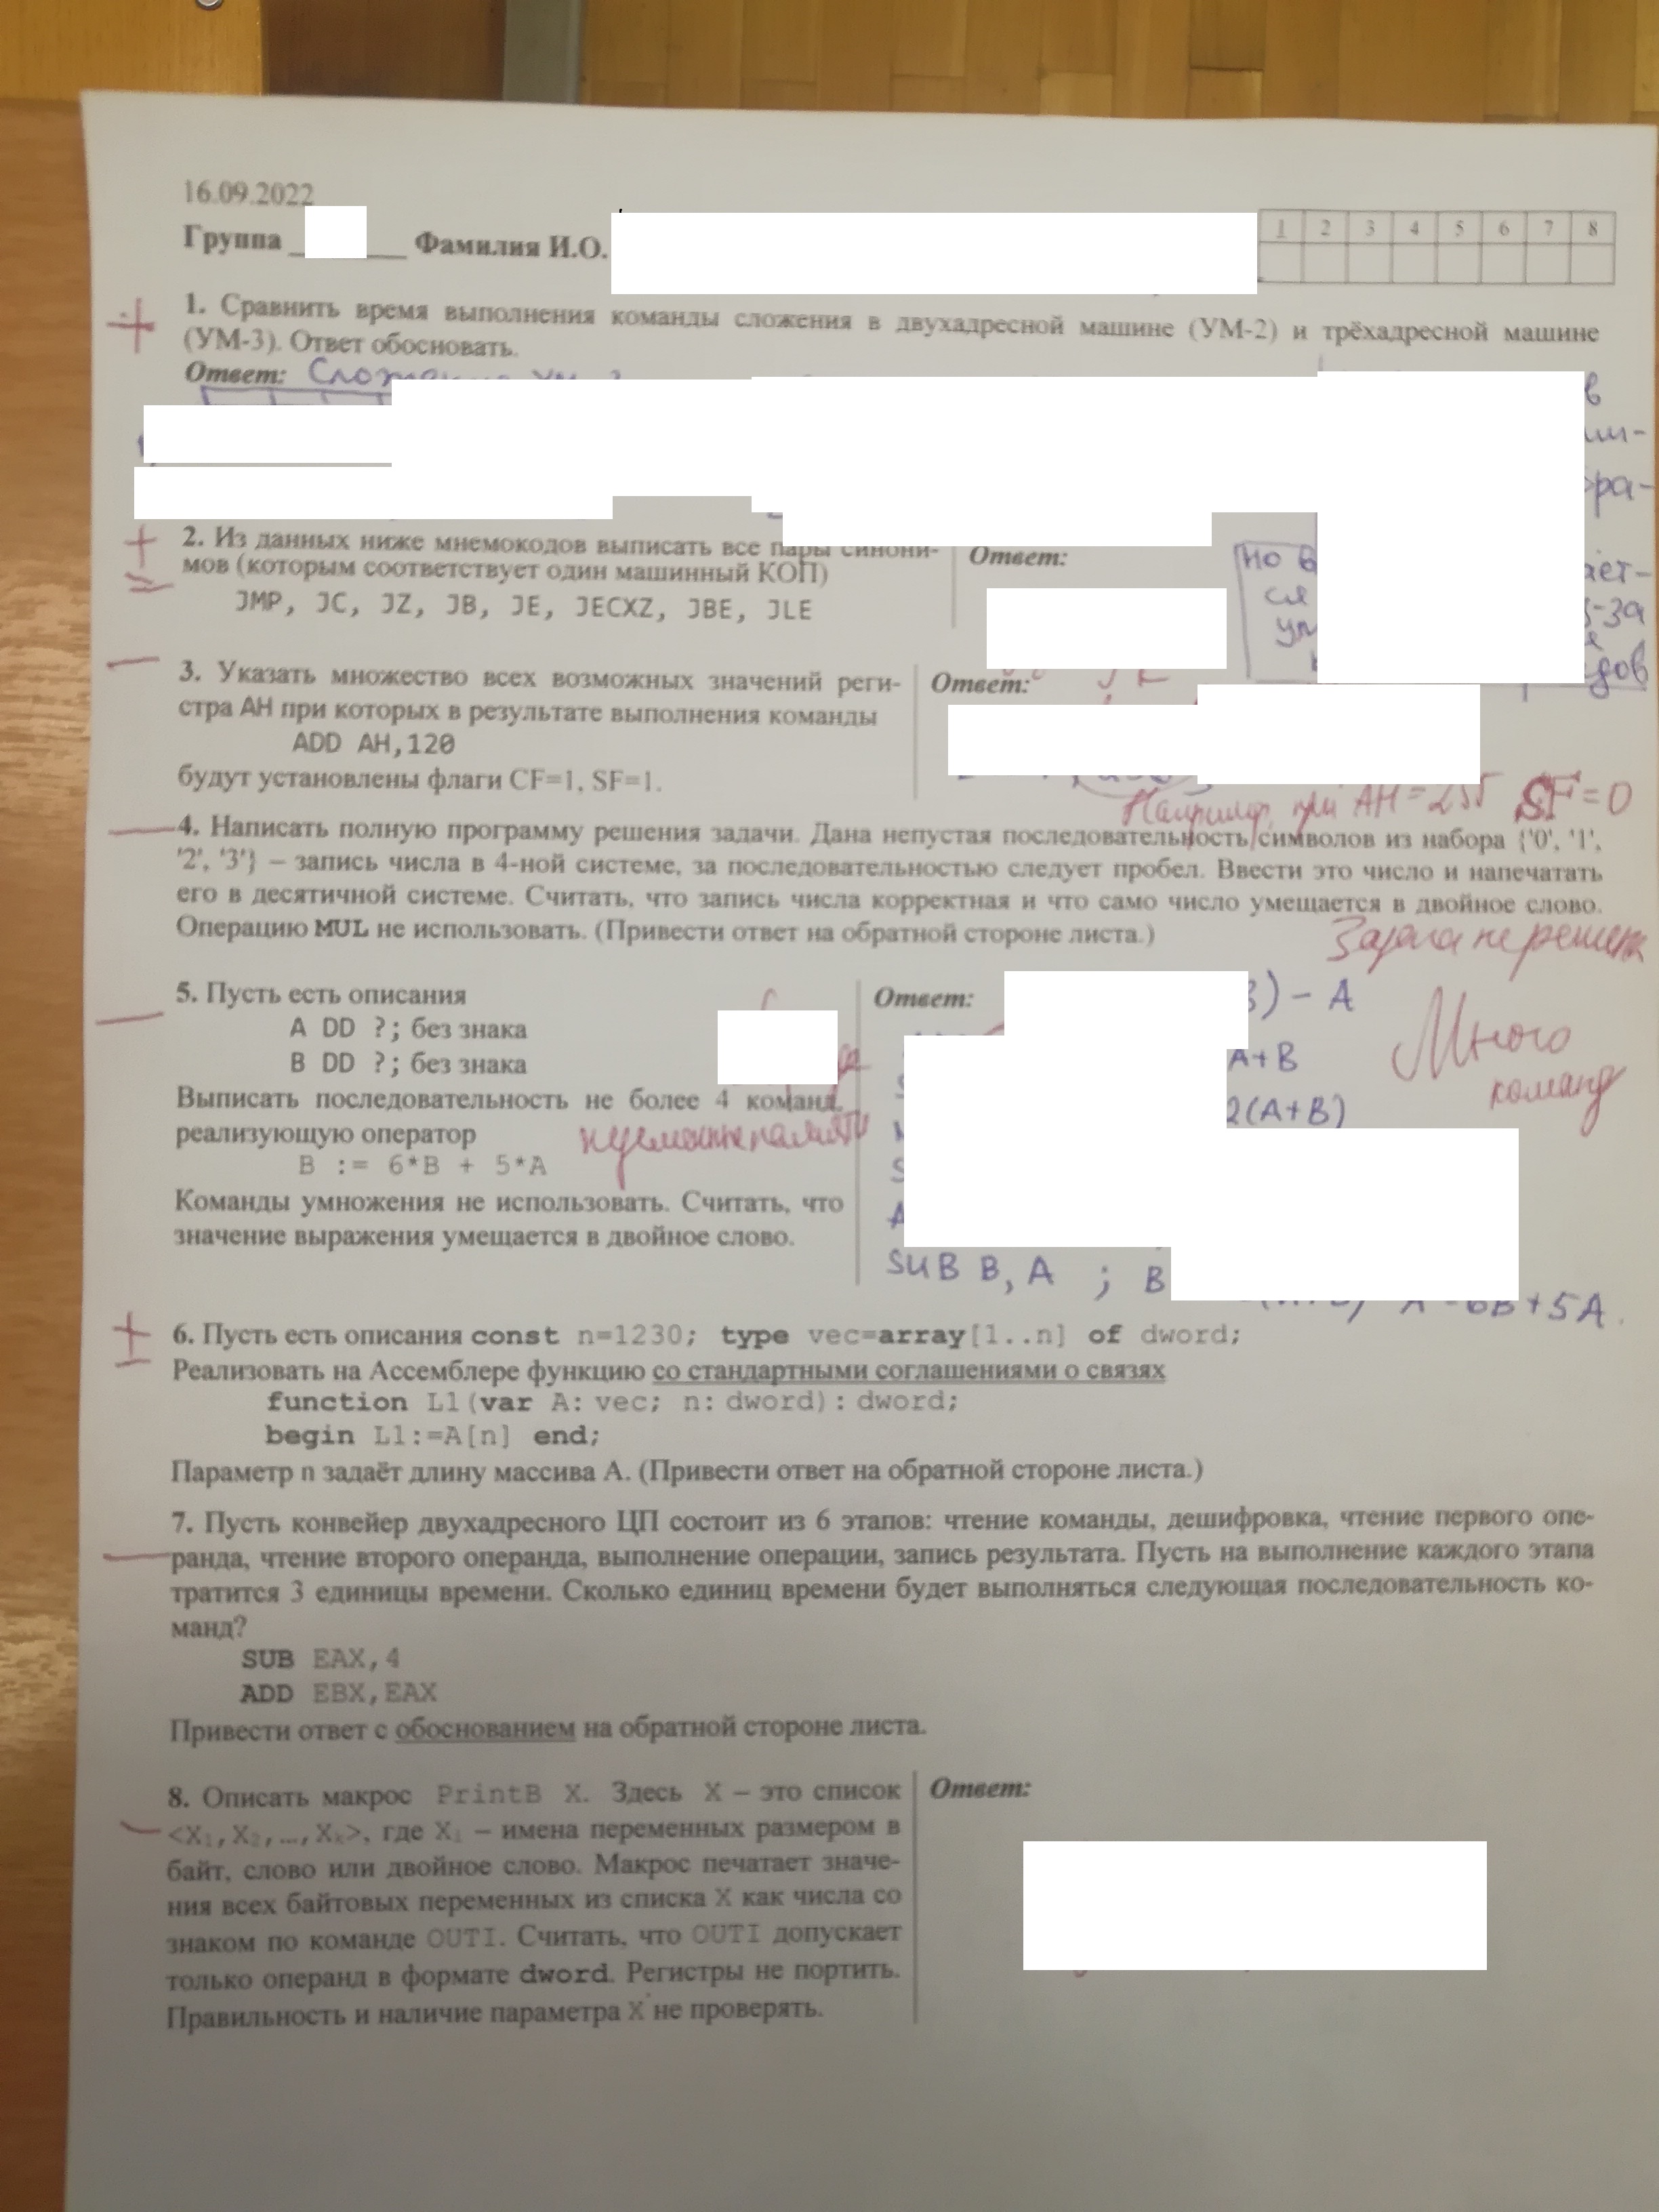 16.09.2022
Группа ______ Фамилия И.О.
1 2 3 4 5 6 7 8
1. Сравнить время выполнения команды сложения в двухадресной машине (УМ-2) и трёхадресной машине
(УМ-3). Ответ обосновать.
Ответ:
2. Из данных ниже мнемокодов выписать все пары синони-
мов (которым соответствует один машинный КОП)
JMP, JC, JZ, JB, JE, JECXZ, JBE, JLE
Ответ:
но в
ся
3. Указать множество всех возможных значений реги-
стра AH при которых в результате выполнения команды
ADD AH,120
будут установлены флаги CF=1, SF=1.
Ответ:
Например, при AH=255 SF=0
4. Написать полную программу решения задачи. Дана непустая последовательность символов из набора {'0', '1',
'2', '3'} – запись числа в 4-ной системе, за последовательностью следует пробел. Ввести это число и напечатать
его в десятичной системе. Считать, что запись числа корректная и что само число умещается в двойное слово.
Операцию MUL не использовать. (Привести ответ на обратной стороне листа.)
Задача не решена
5. Пусть есть описания
A DD ?; без знака
B DD ?; без знака
Выписать последовательность не более 4 команд,
реализующую оператор
B := 6*B + 5*A
Команды умножения не использовать. Считать, что
значение выражения умещается в двойное слово.
Ответ:
) - A
A+B
2(A+B)
SUB B, A ; B
A = 6B+5A.
Много
команд
6. Пусть есть описания const n=1230; type vec=array[1..n] of dword;
Реализовать на Ассемблере функцию со стандартными соглашениями о связях
function L1(var A: vec; n: dword): dword;
begin L1:=A[n] end;
Параметр n задаёт длину массива A. (Привести ответ на обратной стороне листа.)
7. Пусть конвейер двухадресного ЦП состоит из 6 этапов: чтение команды, дешифровка, чтение первого опе-
ранда, чтение второго операнда, выполнение операции, запись результата. Пусть на выполнение каждого этапа
тратится 3 единицы времени. Сколько единиц времени будет выполняться следующая последовательность ко-
манд?
SUB EAX,4
ADD EBX,EAX
Привести ответ с обоснованием на обратной стороне листа.
8. Описать макрос PrintB X. Здесь X – это список
<X₁,X₂,…,Xₖ>, где Xᵢ – имена переменных размером в
байт, слово или двойное слово. Макрос печатает значе-
ния всех байтовых переменных из списка X как числа со
знаком по команде OUTI. Считать, что OUTI допускает
только операнд в формате dword. Регистры не портить.
Правильность и наличие параметра X не проверять.
Ответ: